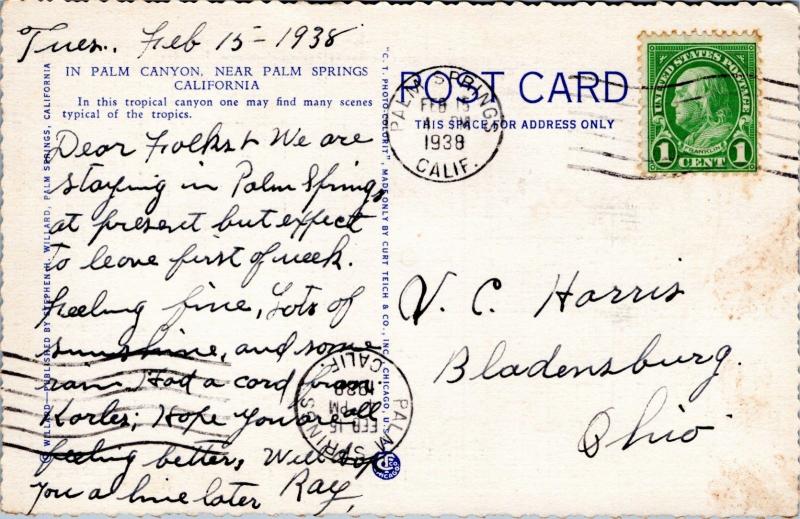 Tues. Feb 15-1938
IN PALM CANYON, NEAR PALM SPRINGS
CALIFORNIA
In this tropical canyon one may find many scenes
typical of the tropics.
Dear Folks + We are
staying in Palm Springs
at present but expect
to leave first of week.
Feeling fine, Lots of
sunshine, and some
rain. Had a card from
Korles; Hope you are all
feeling better, Will drop
you a line later Ray,
© WILLARD—PUBLISHED BY STEPHEN H. WILLARD, PALM SPRINGS, CALIFORNIA
"C. T. PHOTO-COLORIT", MADE ONLY BY CURT TEICH & CO., INC., CHICAGO, U.S.A.
POST CARD
THIS SPACE FOR ADDRESS ONLY
PALM SPRINGS
FEB 15
4 PM
1938
CALIF.
UNITED STATES POSTAGE
FRANKLIN
1 CENT 1
V. C. Harris
Bladensburg.
Ohio
PALM SPRINGS
FEB 15
PM
1938
CALIF.